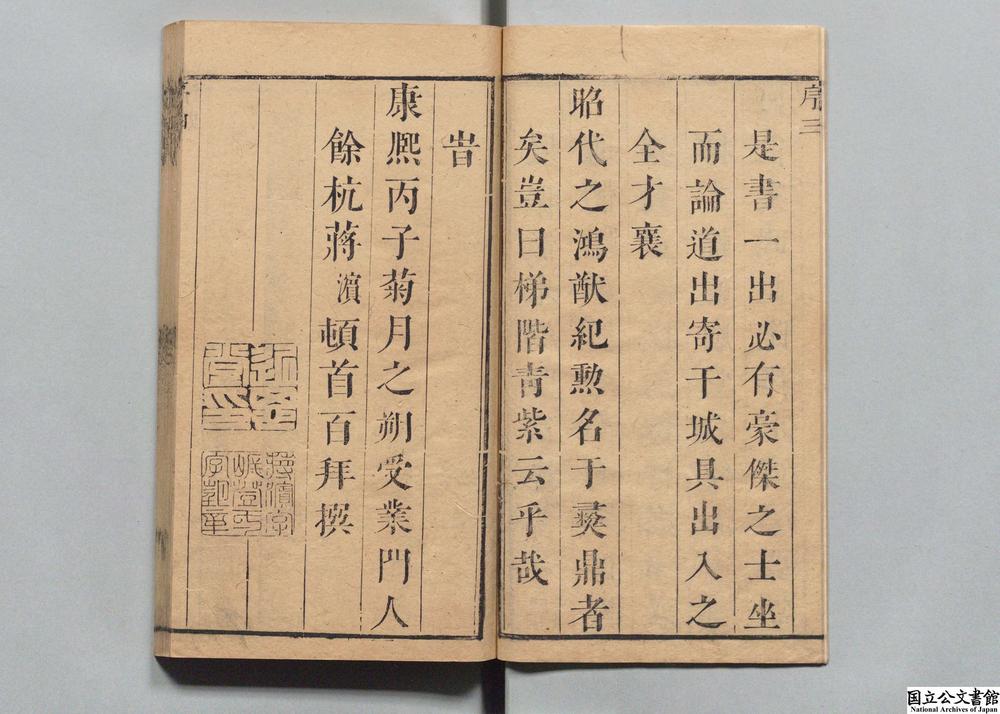 序三
是書一出必有豪傑之士坐
而論道出寄干城具出入之
全才襄
昭代之鴻猷紀勲名于彝鼎者
矣豈曰梯階青紫云乎哉
旹
康熈丙子菊月之朔受業門人
餘杭蔣濵頓首百拜撰
国立公文書館
National Archives of Japan